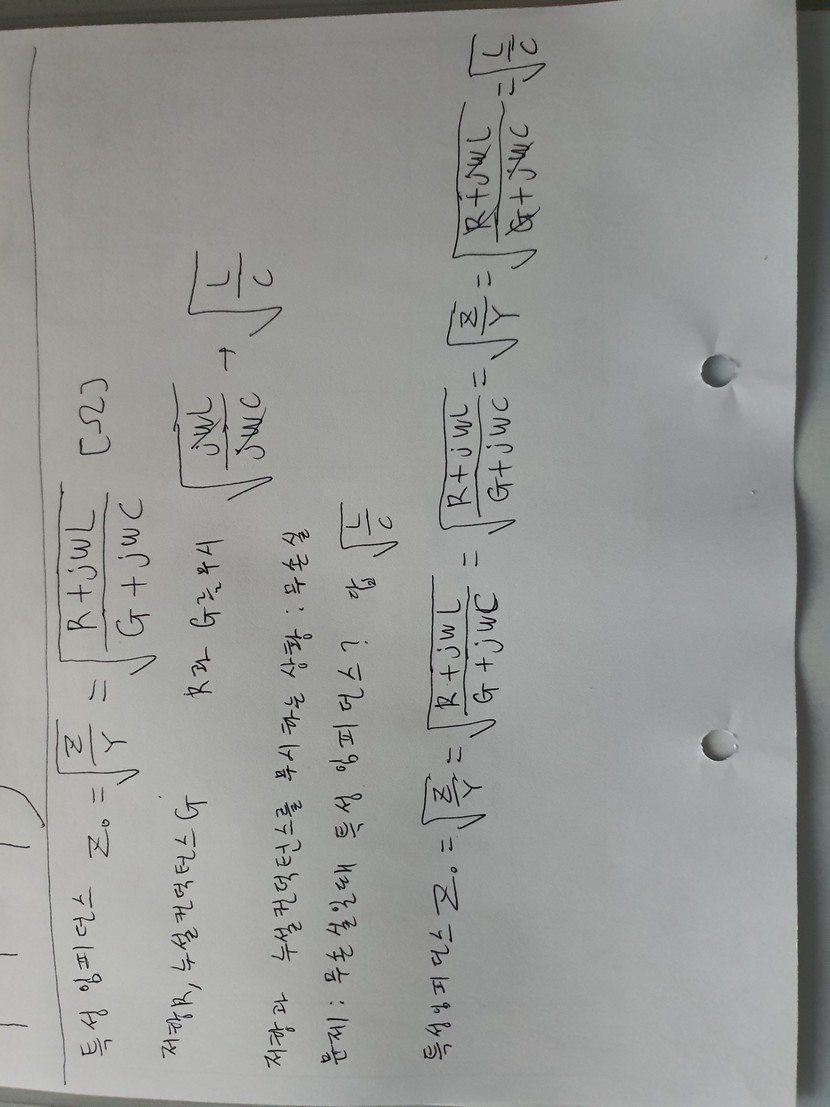 특성 임피던스 Z₀ = √(Z/Y) = √((R+jwL)/(G+jwC)) [Ω]
저항R, 누설컨덕턴스G R과 G를 무시 √(jwL/jwC) → √(L/C)
저항과 누설컨덕턴스를 무시하는 상황 : 무손실
문제 : 무손실일때 특성 임피던스? 답 √(L/C)
특성임피던스 Z₀ = √(Z/Y) = √((R+jwL)/(G+jwC)) = √((R+jwL)/(G+jwC)) = √(Z/Y) = √((R+jwL)/(G+jwC)) = √(L/C)